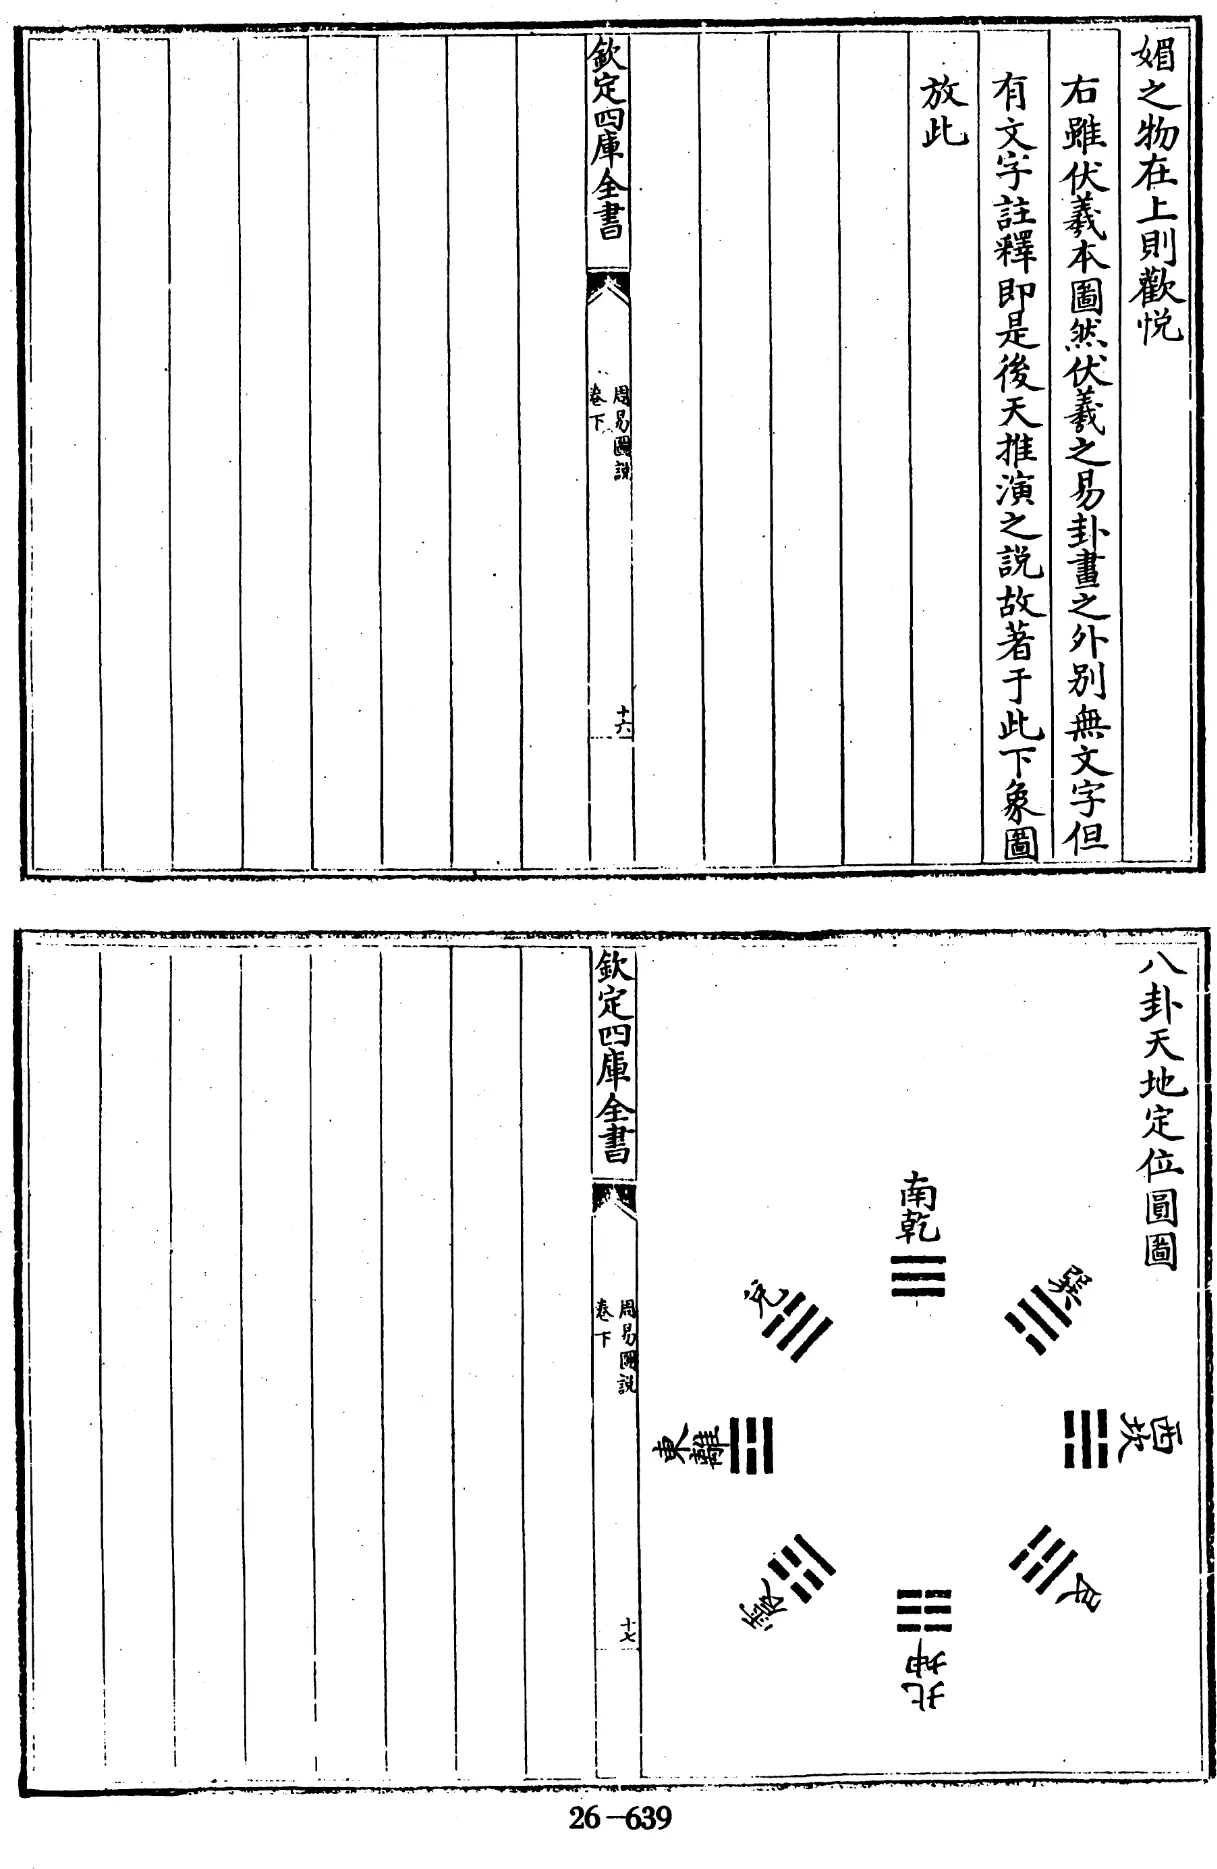 媚之物在上則歡悦
右雖伏羲本圖然伏羲之易卦畫之外别無文字但
有文字註釋即是後天推演之説故著于此下象圖
放此
欽定四庫全書
周易圖説
卷下
十六
八卦天地定位圓圖
南乾
巽
西坎
艮
北坤
震
東離
兌
欽定四庫全書
周易圖説
卷下
十七
26-639